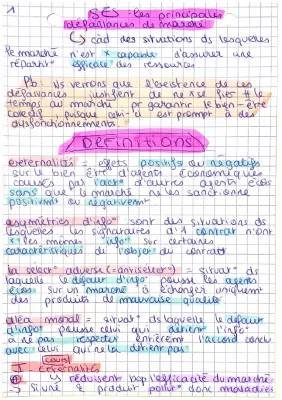 1
SES : les principales
défaillances de marché
↳ càd des situations ds lesquelles
le marché n'est × capable d'assurer une
répart° efficace des ressources
Pb : Ils verrons que l'existence de ces
défaillances justifient de ne se fier # le
temps au marché pr garantir le bien-être
collectif puisque celui-ci est prompt à des
dysfonctionnements.
Définitions
externalités = effets positifs ou négatifs
sur le bien être d'agents économiques
causés par l'act° d'autres agents écos
sans que le marché ne les sanctionne
positivmt ou négativemt
asymétries d'info° sont des situations ds
lesquelles les signataires d'1 contrat n'ont
× les mêmes info° sur certaines
caractéristiques de l'objet du contrat
la select° adverse (= antisélect°) = situat° ds
laquelle le défaut d'info° pousse les agents
écos sur un marché à échanger uniquemt
des produits de mauvaise qualité
aléa moral = situat° ds laquelle le défaut
d'info° pousse celui qui détient l'info°
à ne pas respecter entièremt l'accord conclu
avec celui qui ne la détient pas
cours
I- externalités
⊕ ↳ réduisent bcp l'efficacité du marché
↳ si une € produit pollue donc maladies